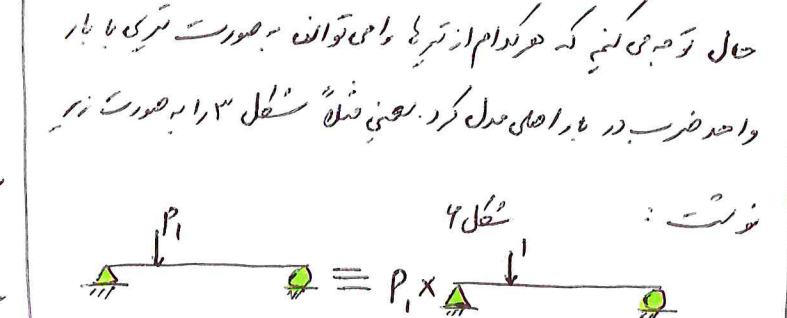 حال توجه می کنیم که هرکدام از تیرها را می توان به صورت تیری با بار
واحد ضرب در بار اصلی مدل کرد. یعنی مثلاً شکل ۳ را به صورت زیر
نوشت :
شکل ۴
P₁ ≡ P₁ × 1